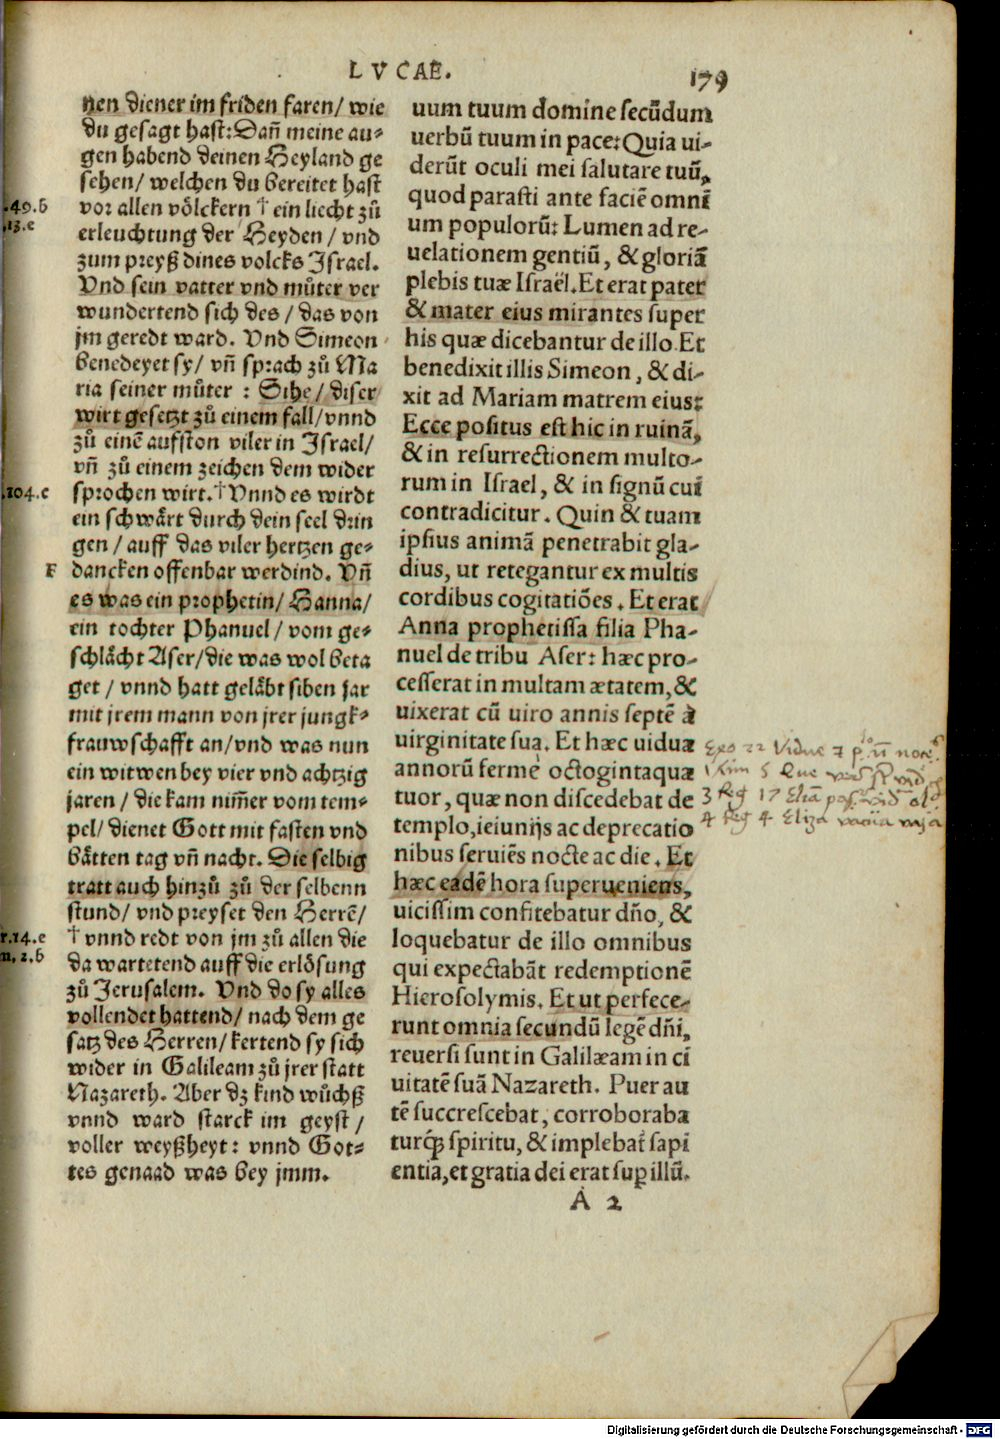 LVCAE.
179
nen diener im friden faren/ wie
du gesagt hast: Dañ meine au-
gen habend deinen Heyland ge
sehen/ welchen du bereitet hast
vor allen völckern † ein liecht zů
erleuchtung der Heyden / vnd
zum preyß dines volcks Israel.
Vnd sein vatter vnd můter ver
wundertend sich des / das von
jm geredt ward. Vnd Simeon
benedeyet sy/ vñ sprach zů Ma
ria seiner můter : Sihe/ diser
wirt gesetzt zů einem fall/vnnd
zů einē aufston viler in Israel/
vñ zů einem zeichen dem wider
sprochen wirt. † Vnnd es wirdt
ein schwärt durch dein seel drin
gen / auff das viler hertzen ge-
dancken offenbar werdind. Vñ
es was ein prophetin/ Hanna/
ein tochter Phanuel / vom ge-
schlächt Aser/die was wol beta
get / vnnd hatt geläbt siben jar
mit jrem mann von jrer jungk-
frauwschafft an/vnd was nun
ein witwen bey vier vnd achtzig
jaren / die kam nim̄er vom tem-
pel/ dienet Gott mit fasten vnd
bätten tag vñ nacht. Die selbig
tratt auch hinzů zů der selbenn
stund/ vnd preyset den Herrē/
† vnnd redt von jm zů allen die
da wartetend auff die erlösung
zů Jerusalem. Vnd do sy alles
vollendet hattend/ nach dem ge
satz des Herren/ kertend sy sich
wider in Galileam zů jrer statt
Nazareth. Aber dz kind wůchß
vnnd ward starck im geyst /
voller weyßheyt : vnnd Got-
tes genaad was bey jmm.
.49.b
.13.e
.104.c
F
r.14.e
n, 2.b
uum tuum domine secūdum
uerbū tuum in pace: Quia ui-
derūt oculi mei salutare tuū,
quod parasti ante faciē omnī
um populorū: Lumen ad re-
uelationem gentiū, & gloriā
plebis tuæ Israël. Et erat pater
& mater eius mirantes super
his quæ dicebantur de illo. Et
benedixit illis Simeon, & di-
xit ad Mariam matrem eius:
Ecce positus est hic in ruinā,
& in resurrectionem multo-
rum in Israel, & in signū cui
contradicitur. Quin & tuam
ipsius animā penetrabit gla-
dius, ut retegantur ex multis
cordibus cogitatiōes. Et erat
Anna prophetissa filia Pha-
nuel de tribu Aser: hæc pro-
cesserat in multam ætatem, &
uixerat cū uiro annis septē à
uirginitate sua. Et hæc uidua
annorū fermè octogintaqua
tuor, quæ non discedebat de
templo, ieiunijs ac deprecatio
nibus seruiēs nocte ac die. Et
hæc eadē hora superueniens,
uicissim confitebatur dño, &
loquebatur de illo omnibus
qui expectabāt redemptionē
Hierosolymis. Et ut perfece-
runt omnia secundū legē dñi,
reuersi sunt in Galilæam in ci
uitatē suā Nazareth. Puer au
tē succrescebat, corroboraba
turq́; spiritu, & implebat́ sapi
entia, et gratia dei erat sup illū.
A 2
Exo 22 Vidue
1 Tim 5 Que
3 Reg 17 Eliā
4 Reg 4 Eliza
Digitalisierung gefördert durch die Deutsche Forschungsgemeinschaft - DFG